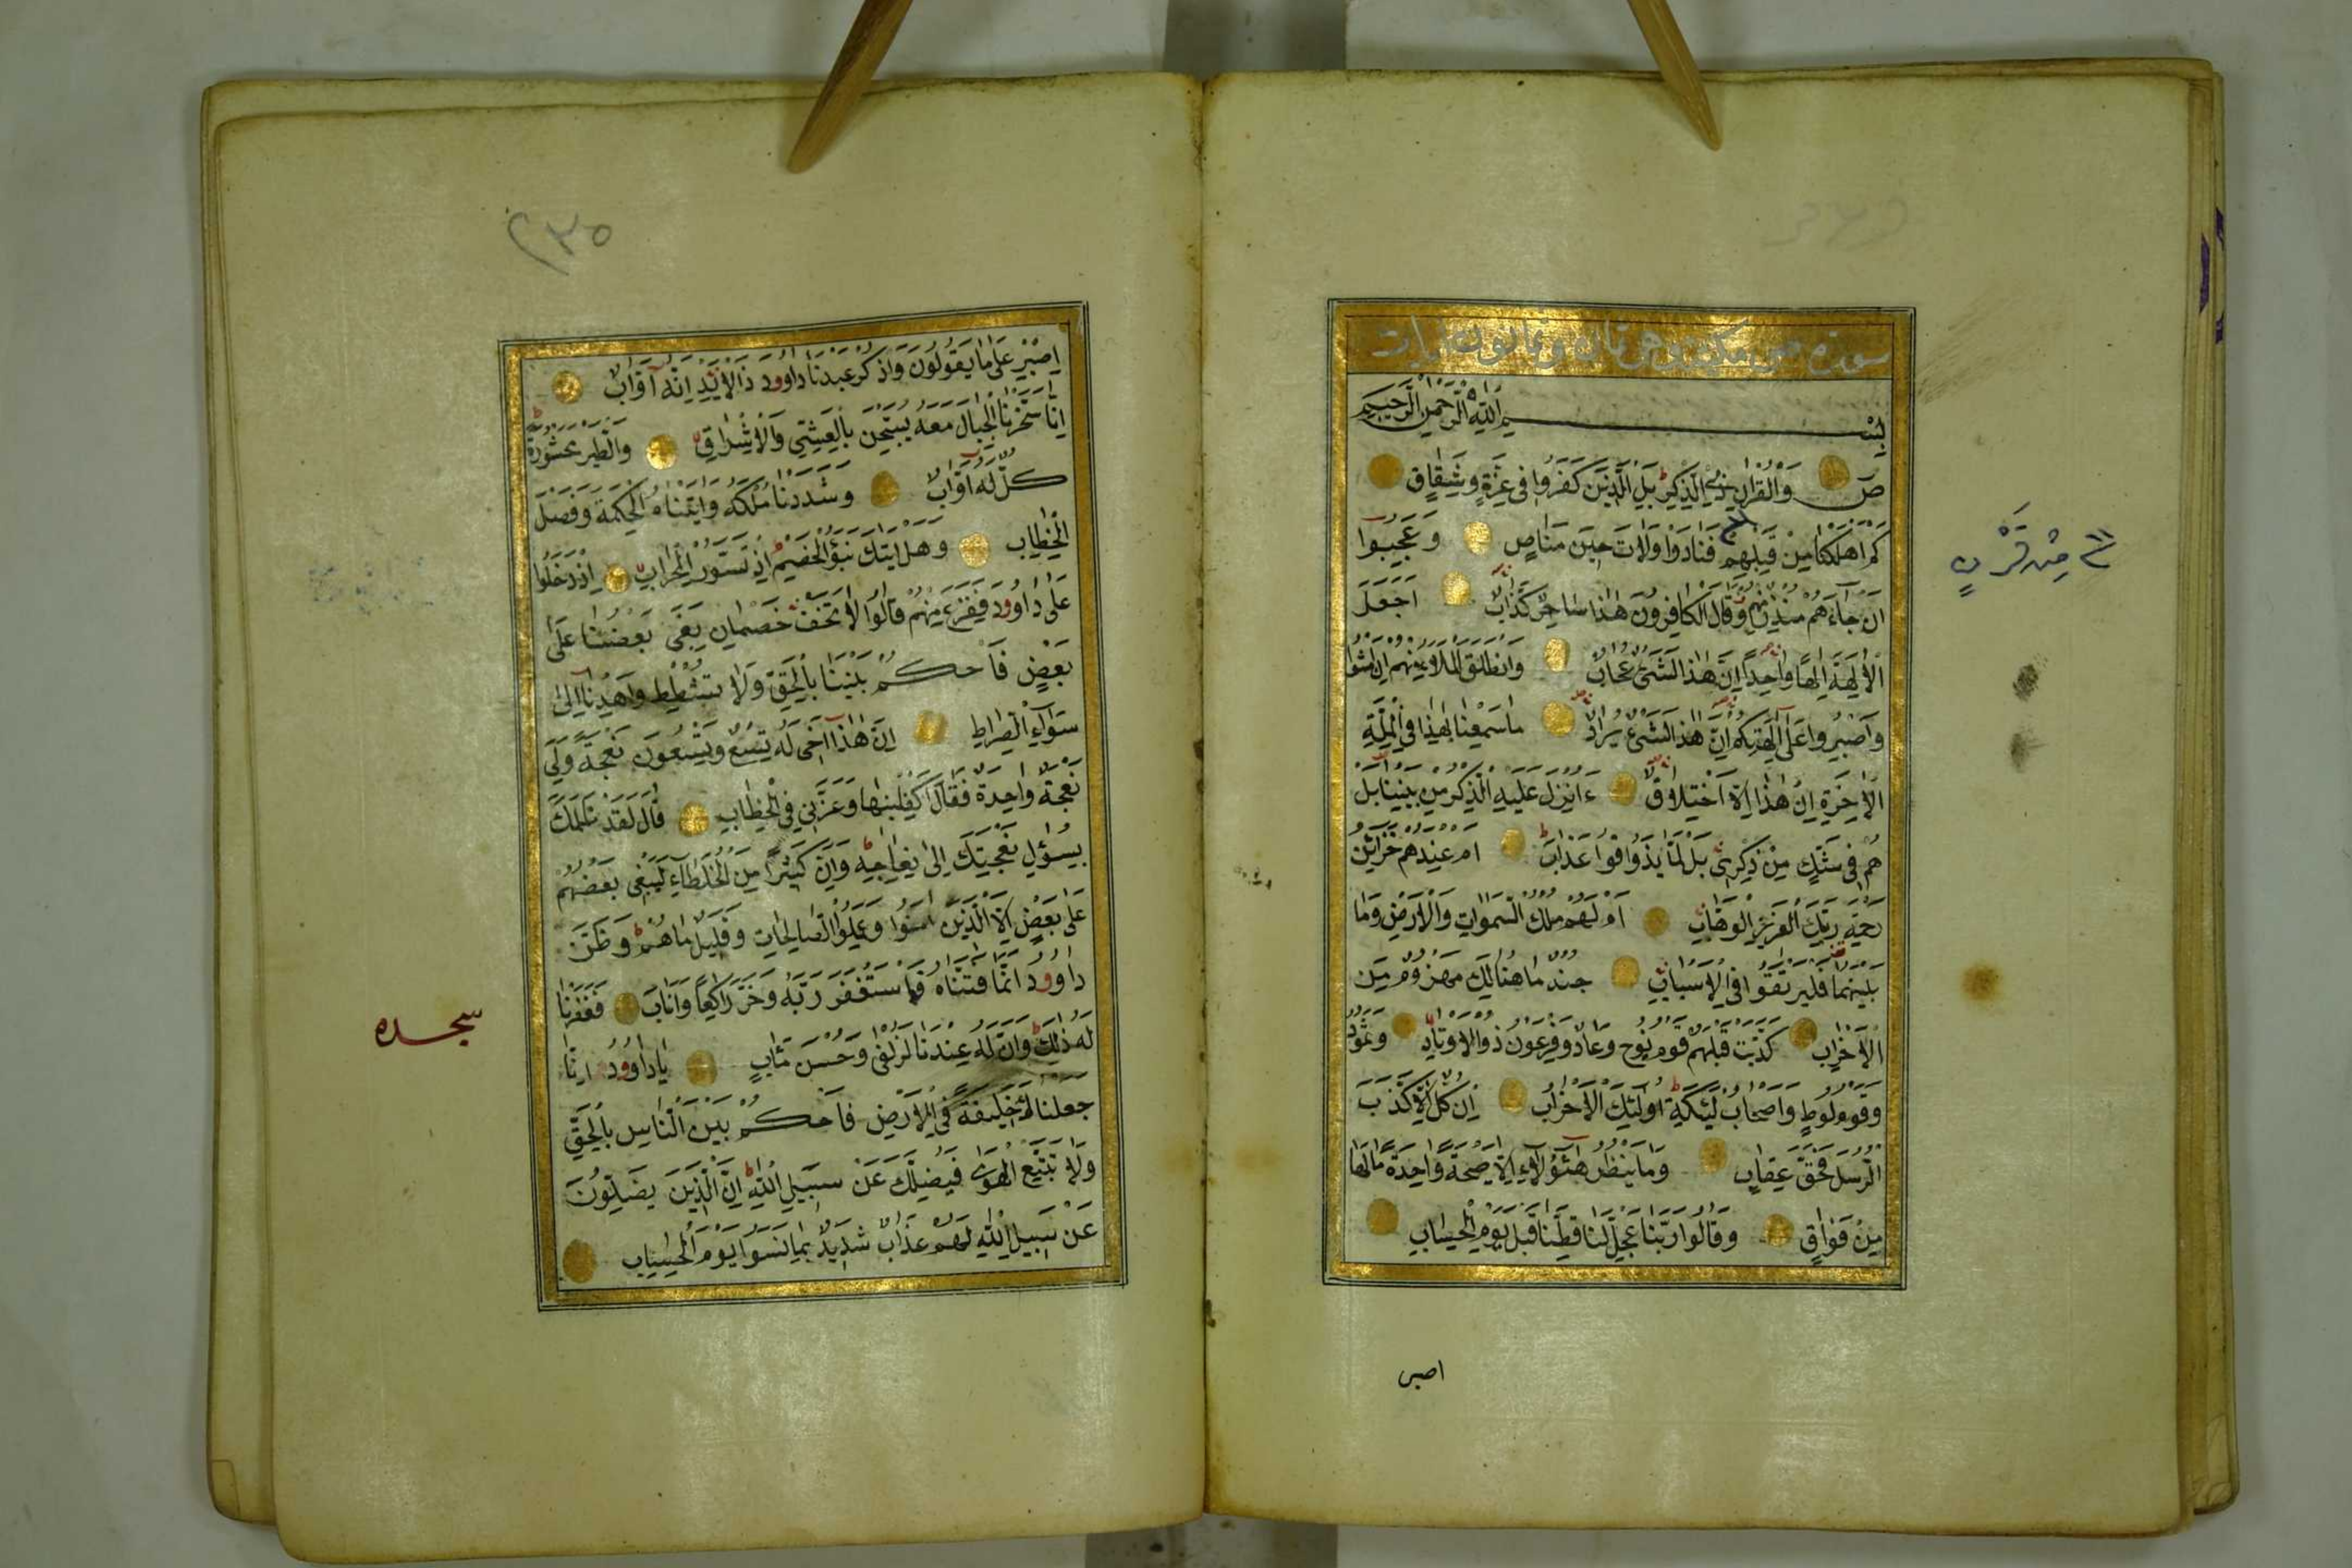 سورة ص مكية وهي ثمان وثمانون ايات
بِسْمِ اللّٰهِ الرَّحْمٰنِ الرَّحِيمِ
صٓ وَالْقُرْاٰنِ ذِي الذِّكْرِ بَلِ الَّذِينَ كَفَرُوا فِي عِزَّةٍ وَشِقَاقٍ
كَمْ اَهْلَكْنَا مِنْ قَبْلِهِمْ فَنَادَوْا وَلَاتَ حِينَ مَنَاصٍ وَعَجِبُوا
مِنْ قَرْنٍ
اَنْ جَاءَهُمْ مُنْذِرٌ مِنْهُمْ وَقَالَ الْكَافِرُونَ هٰذَا سَاحِرٌ كَذَّابٌ اَجَعَلَ
الْاٰلِهَةَ اِلٰهًا وَاحِدًا اِنَّ هٰذَا لَشَيْءٌ عُجَابٌ وَانْطَلَقَ الْمَلَاُ مِنْهُمْ اَنِ امْشُوا
وَاصْبِرُوا عَلٰى اٰلِهَتِكُمْ اِنَّ هٰذَا لَشَيْءٌ يُرَادُ مَا سَمِعْنَا بِهٰذَا فِي الْمِلَّةِ
الْاٰخِرَةِ اِنْ هٰذَا اِلَّا اخْتِلَاقٌ ءَاُنْزِلَ عَلَيْهِ الذِّكْرُ مِنْ بَيْنِنَا بَلْ
هُمْ فِي شَكٍّ مِنْ ذِكْرِي بَلْ لَمَّا يَذُوقُوا عَذَابِ اَمْ عِنْدَهُمْ خَزَائِنُ
رَحْمَةِ رَبِّكَ الْعَزِيزِ الْوَهَّابِ اَمْ لَهُمْ مُلْكُ السَّمٰوَاتِ وَالْاَرْضِ وَمَا
بَيْنَهُمَا فَلْيَرْتَقُوا فِي الْاَسْبَابِ جُنْدٌ مَا هُنَالِكَ مَهْزُومٌ مِنَ
الْاَحْزَابِ كَذَّبَتْ قَبْلَهُمْ قَوْمُ نُوحٍ وَعَادٌ وَفِرْعَوْنُ ذُو الْاَوْتَادِ وَثَمُودُ
وَقَوْمُ لُوطٍ وَاَصْحَابُ لْـَٔيْكَةِ اُولٰئِكَ الْاَحْزَابُ اِنْ كُلٌّ اِلَّا كَذَّبَ
الرُّسُلَ فَحَقَّ عِقَابِ وَمَا يَنْظُرُ هٰؤُلَاءِ اِلَّا صَيْحَةً وَاحِدَةً مَا لَهَا
مِنْ فَوَاقٍ وَقَالُوا رَبَّنَا عَجِّلْ لَنَا قِطَّنَا قَبْلَ يَوْمِ الْحِسَابِ
اصبر
٢٣٥
اِصْبِرْ عَلٰى مَا يَقُولُونَ وَاذْكُرْ عَبْدَنَا دَاوُودَ ذَا الْاَيْدِ اِنَّهُ اَوَّابٌ
اِنَّا سَخَّرْنَا الْجِبَالَ مَعَهُ يُسَبِّحْنَ بِالْعَشِيِّ وَالْاِشْرَاقِ وَالطَّيْرَ مَحْشُورَةً
كُلٌّ لَهُ اَوَّابٌ وَشَدَدْنَا مُلْكَهُ وَاٰتَيْنَاهُ الْحِكْمَةَ وَفَصْلَ
الْخِطَابِ وَهَلْ اَتٰيكَ نَبَؤُا الْخَصْمِ اِذْ تَسَوَّرُوا الْمِحْرَابَ اِذْ دَخَلُوا
عَلٰى دَاوُودَ فَفَزِعَ مِنْهُمْ قَالُوا لَا تَخَفْ خَصْمَانِ بَغٰى بَعْضُنَا عَلٰى
بَعْضٍ فَاحْكُمْ بَيْنَنَا بِالْحَقِّ وَلَا تُشْطِطْ وَاهْدِنَا اِلٰى
سَوَاءِ الصِّرَاطِ اِنَّ هٰذَا اَخِي لَهُ تِسْعٌ وَتِسْعُونَ نَعْجَةً وَلِيَ
نَعْجَةٌ وَاحِدَةٌ فَقَالَ اَكْفِلْنِيهَا وَعَزَّنِي فِي الْخِطَابِ قَالَ لَقَدْ ظَلَمَكَ
بِسُؤَالِ نَعْجَتِكَ اِلٰى نِعَاجِهِ وَاِنَّ كَثِيرًا مِنَ الْخُلَطَاءِ لَيَبْغِي بَعْضُهُمْ
عَلٰى بَعْضٍ اِلَّا الَّذِينَ اٰمَنُوا وَعَمِلُوا الصَّالِحَاتِ وَقَلِيلٌ مَا هُمْ وَظَنَّ
دَاوُودُ اَنَّمَا فَتَنَّاهُ فَاسْتَغْفَرَ رَبَّهُ وَخَرَّ رَاكِعًا وَاَنَابَ فَغَفَرْنَا
سجده
لَهُ ذٰلِكَ وَاِنَّ لَهُ عِنْدَنَا لَزُلْفٰى وَحُسْنَ مَاٰبٍ يَا دَاوُودُ اِنَّا
جَعَلْنَاكَ خَلِيفَةً فِي الْاَرْضِ فَاحْكُمْ بَيْنَ النَّاسِ بِالْحَقِّ
وَلَا تَتَّبِعِ الْهَوٰى فَيُضِلَّكَ عَنْ سَبِيلِ اللّٰهِ اِنَّ الَّذِينَ يَضِلُّونَ
عَنْ سَبِيلِ اللّٰهِ لَهُمْ عَذَابٌ شَدِيدٌ بِمَا نَسُوا يَوْمَ الْحِسَابِ